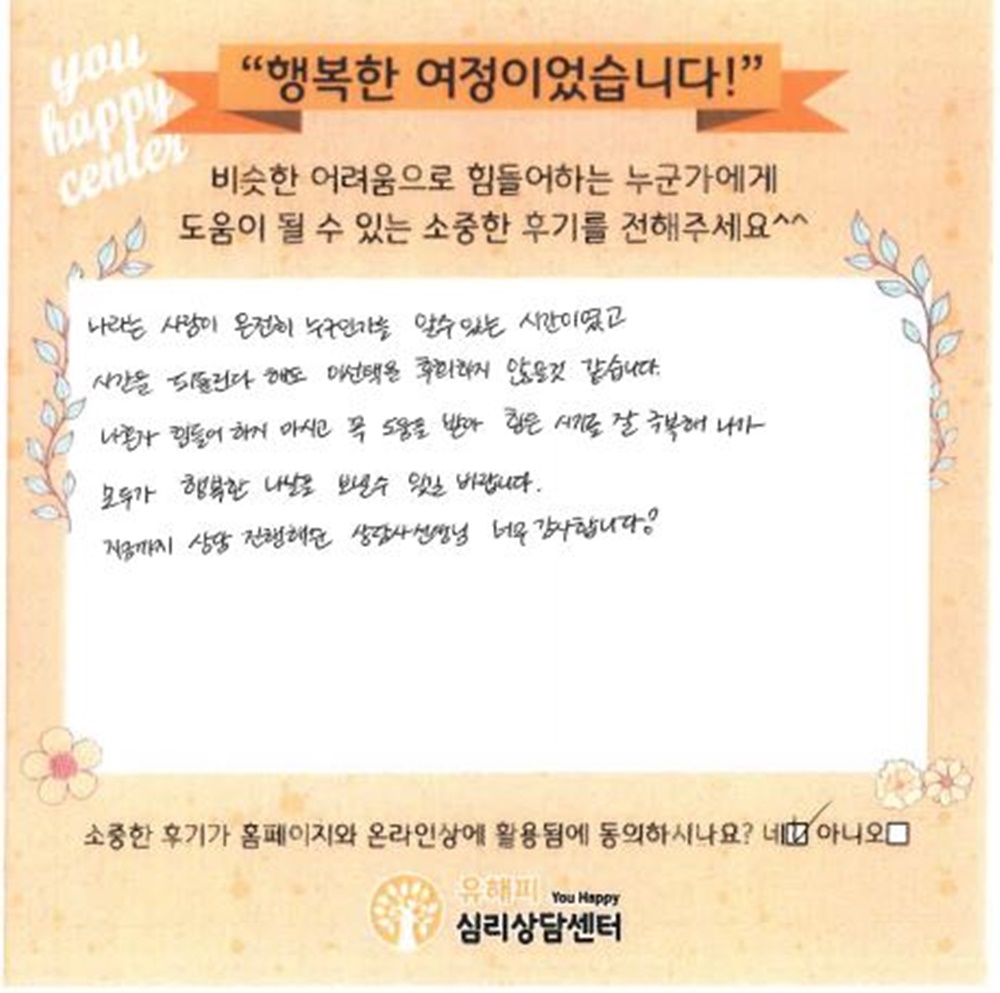 you
happy
center
“행복한 여정이었습니다!”
비슷한 어려움으로 힘들어하는 누군가에게
도움이 될 수 있는 소중한 후기를 전해주세요^^
나라는 사람이 온전히 누구인가를 알수있는 시간이였고
시간을 되돌린다 해도 이선택을 후회하지 않을것 같습니다.
나혼자 힘들어 하지 마시고 꼭 도움을 받아 힘든 시기를 잘 극복해 나가
모두가 행복한 나날을 보낼수 있길 바랍니다.
지금까지 상담 진행해준 상담사선생님 너무 감사합니다
소중한 후기가 홈페이지와 온라인상에 활용됨에 동의하시나요? 네☑ 아니오☐
유해피 You Happy
심리상담센터